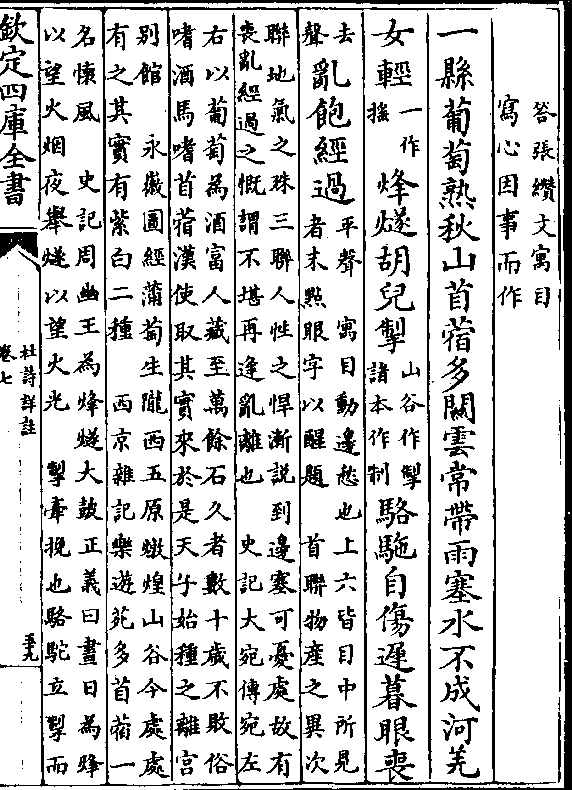 答張纘文寓目
寫心因事而作
一縣葡萄熟秋山苜蓿多關雲常帶雨塞水不成河羌
女輕一作搖烽燧胡兒掣山谷作掣諸本作制駱駞自傷遲暮眼喪
去聲亂飽經過平聲 寓目動邊愁也上六皆目中所見
者末點眼字以醒題 首聯物產之異次
聯地氣之殊三聯人性之悍漸說到邊塞可憂處故有
喪亂經過之慨謂不堪再逢亂離也 史記大宛傳宛左
右以葡萄為酒富人藏至萬餘石久者數十歲不敗俗
嗜酒馬嗜苜蓿漢使取其實來於是天子始種之離宮
别館 永徽圖經蒲萄生隴西五原燉煌山谷今處處
有之其實有紫白二種 西京雜記樂遊苑多苜蓿一
名懷風 史記周幽王為烽燧大鼓正義曰晝日為烽
以望火烟夜舉燧以望火光 掣牽挽也駱駝立掣而
欽定四庫全書
杜詩詳註
卷七
五九